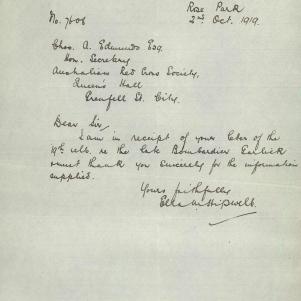 Rose Park
No. 7608
2nd Oct. 1919.
Chas. A. Edmunds Esq.
Hon. Secretary
Australian Red Cross Society,
Queen's Hall
Grenfell St. City.
Dear Sir,
I am in receipt of your letter of the
19th ulto. re the late Bombardier
& must thank you sincerely for the information
supplied.
Yours faithfully